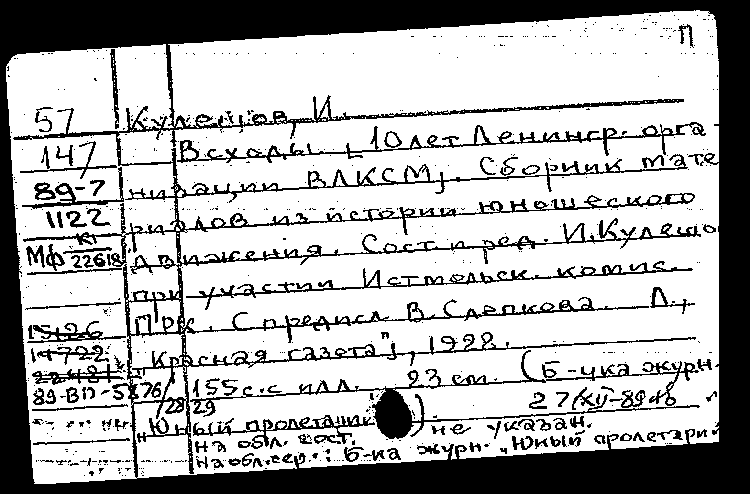 П
57 Кулешов, И.
147 Всходы [10 лет Ленингр. орга-
89-7 низации ВЛКСМ]. Сборник мате
1122 риалов из истории юношеского
МФ кг 22618 движения. Сост. и ред. И. Кулешо
при участии Истмольск. комис.
15426 ПРК. С предисл. В. Слепкова. Л.,
14722 "Красная газета"], 1928.
89-ВП-5876/ 155 с. с илл. 23 см. (Б-чка журн.
/28 29 27/XII-89
"Юный пролетарий"). не указан.
на обл. сост.
на обл. сер.: Б-ка журн. "Юный пролетарий